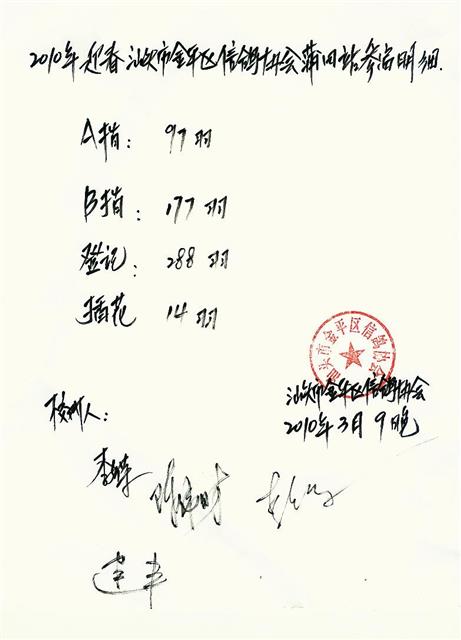 2010年迎春汕头市金平区信鸽协会莆田站参翁明细.
A指: 97羽
B指: 177羽
登记: 288羽
插花 14羽
汕头市金平区信鸽协会
汕头市金平区信鸽协会
2010年3月9日晚
校对人: